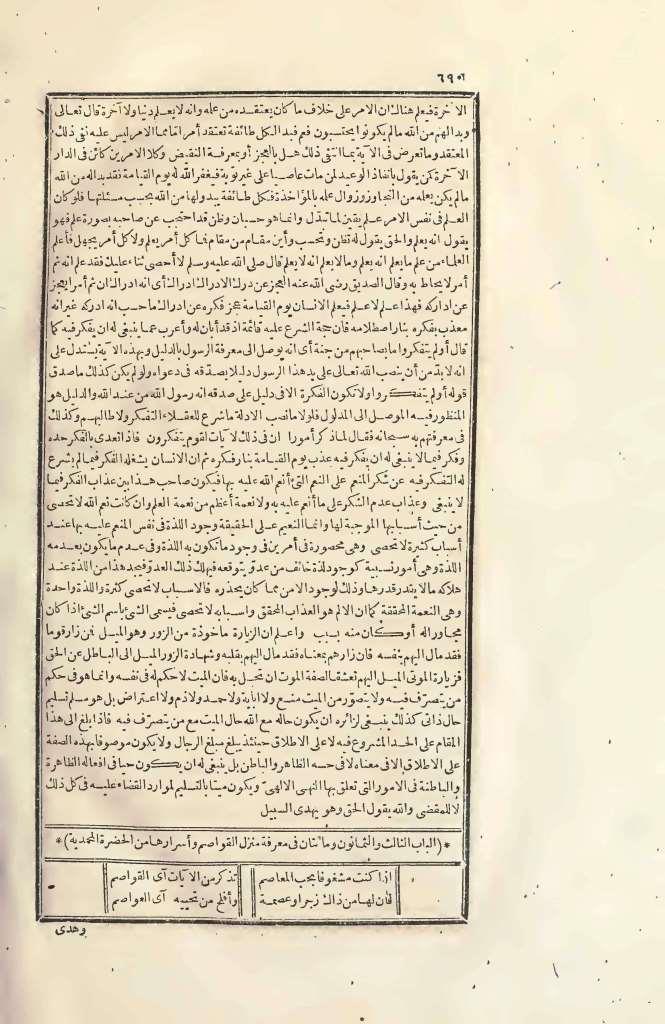 ٦٩٠
الآخرة فيعلم هنالك ان الامر على خلاف ما كان يعتقده من علمه وانه لا يعلم دنيا ولا آخرة قال تعالى
وبدا لهم من الله ما لم يكونوا يحتسبون فعم فبدا لكل طائفة تعتقد أمرا ما مما الامر ليس عليه نفى ذلك
المعتقد وما تعرض فى الآية بما انتفى ذلك هل بالعجز أو بمعرفة النقيض وكلا الامرين كائن فى الدار
الآخرة كمن يقول بانفاذ الوعيد لمن مات عاصيا على غير توبة فيغفر الله له يوم القيامة فقد بدا له من الله
ما لم يكن يعلمه من التجاوز وزوال علمه بالمؤاخذة فكل طائفة يبدو لها من الله بحسب مسئلتها فلو كان
العلم فى نفس الامر علم يقين لما تبدّل وانما هو حسبان وظن قد احتجب عن صاحبه بصورة علم فهو
يقول انه يعلم والحق يقول له تظن وتحسب وأين مقام من مقام فما كل أمر يعلم ولا كل أمر يجهل فأعلم
العلماء من علم ما يعلم انه يعلم وما لا يعلم انه لا يعلم قال صلى الله عليه وسلم لا أحصى ثناء عليك فقد علم انه ثم
أمر لا يحاط به وقال الصديق رضى الله عنه العجز عن درك الادراك ادراك أى انه ادراك ان ثم أمرا يعجز
عن ادراكه فهذا علم لا علم فيعلم الانسان يوم القيامة عجز فكره عن ادراك ما حسب انه ادركه غير انه
معذب بفكره بنار اصطلامه فان حجة الشرع عليه قائمة اذ قد أبان له وأعرب عما ينبغى له ان يفكر فيه كما
قال أولم يتفكروا ما بصاحبهم من جنة أى انه يوصل الى معرفة الرسول بالدليل وبهذه الآية يستدل على
انه لابدّ من أن ينصب الله تعالى على يد هذا الرسول دليلا يصدقه فى دعواه ولو لم يكن كذلك ما صدق
قوله أولم يتفكروا ولا تكون الفكرة الا فى دليل على صدقه انه رسول الله من عند الله والدليل هو
المنظور فيه الموصل الى المدلول فلولا ما نصب الادلة ما شرع للعقلاء التفكر ولا طالبهم وكذلك
فى معرفتهم به سبحانه فقال لما ذكر أمورا ان فى ذلك لآيات لقوم يتفكرون فاذا تعدى بالفكر حده
وفكر فيما لا ينبغى له ان يفكر فيه عذب يوم القيامة بنار فكره ثم ان الانسان يشغله الفكر فيما لم يشرع
له التفكر فيه عن شكر المنعم على النعم التى أنعم الله عليه بها فيكون صاحب هذا بين عذاب الفكر فيما
لا ينبغى وعذاب عدم الشكر على ما أنعم عليه به ولا نعمة أعظم من نعمة العلم وان كانت نعم الله لا تحصى
من حيث أسبابها الموجبة لها وانما النعيم على الحقيقة وجود اللذة فى نفس المنعم عليه بها عند
أسباب كثيرة لا تحصى وهى محصورة فى أمرين فى وجود ما تكون به اللذة وفى عدم ما يكون بعدمه
اللذة وهى أمور نسبية كوجود لذة خائف من عدو يتوقعه فيهلك ذلك العدو فيجد هذا من اللذة عند
هلاكه ما لا يقدر قدرها وذلك لوجود الامن مما كان يحذره فالاسباب لا تحصى كثرة واللذة واحدة
وهى النعمة المحققة كما ان الالم هو العذاب المحقق واسبابه لا تحصى فيسمى الشئ باسم الشئ اذا كان
مجاورا له أو كان منه بسبب واعلم ان الزيارة مأخوذة من الزور وهو الميل فمن زار قوما
فقد مال اليهم بنفسه فان زارهم بمعناه فقد مال اليهم بقلبه وشهادة الزور الميل الى الباطل عن الحق
فزيارة الموتى الميل اليهم تعشقا لصفة الموت ان تحل به فان الميت لا حكم له فى نفسه وانما هو فى حكم
من يتصرّف فيه ولا يتصوّر من الميت منع ولا اباية ولا حمد ولا ذم ولا اعتراض بل هو مسلم تسليم
حال ذاتى كذلك ينبغى لزائره ان يكون حاله مع الله حال الميت مع من يتصرّف فيه فاذا بلغ الى هذا
المقام على الحد المشروع فيه لا على الاطلاق حينئذ يبلغ مبلغ الرجال ولا يكون موصوفا بهذه الصفة
على الاطلاق الا فى معناه لا فى حسه الظاهر والباطن بل ينبغى له ان يكون حيا فى افعاله الظاهرة
والباطنة فى الامور التى تعلق بها النهى الالهىّ ويكون ميتا بالتسليم لموارد القضاء عليه فى كل ذلك
لا للمقضى والله يقول الحق وهو يهدى السبيل
* (الباب الثالث والثمانون ومائتان فى معرفة منزل القواصم وأسرارها من الحضرة المحمدية) *
اذا كنت مشغوفا بحب المعاصم تذكر من الآيات آى القواصم
فان لها من ذاك زجرا وعصمة وأفلح من تحييه آى العواصم
وهدى